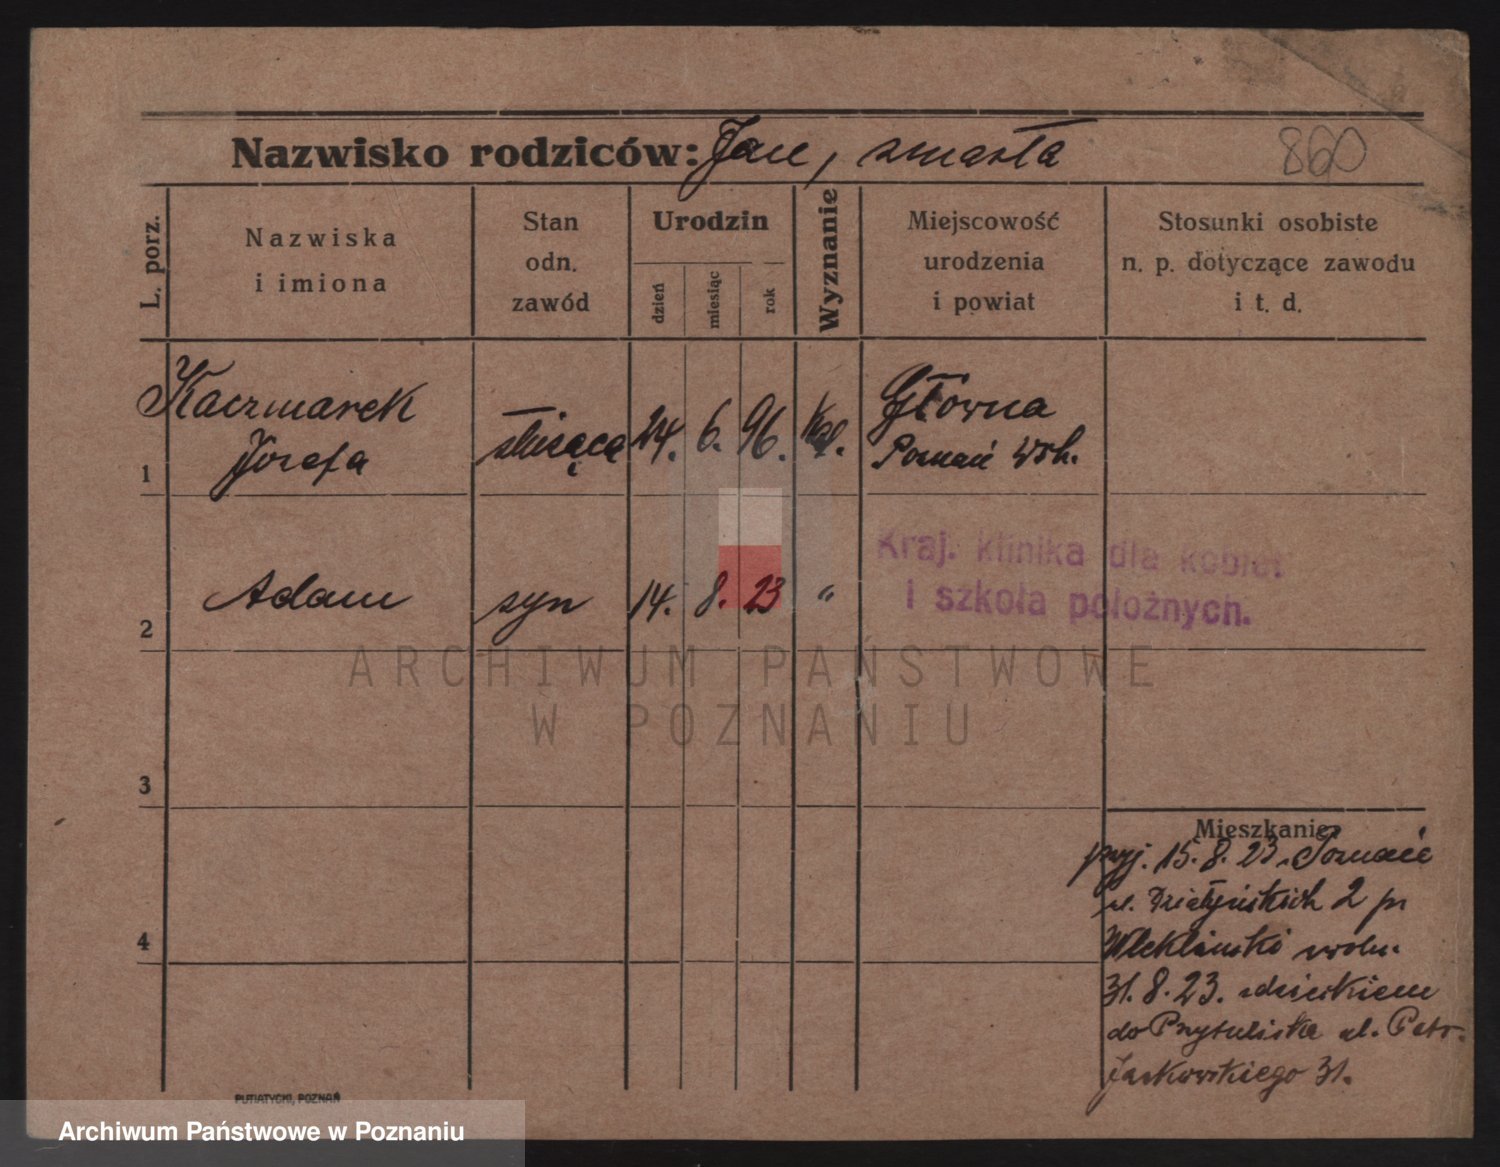 Nazwisko rodziców: Jan, zmarła
860
L. porz.
Nazwiska
i imiona
Stan
odn.
zawód
Urodzin
dzień
miesiąc
rok
Wyznanie
Miejscowość
urodzenia
i powiat
Stosunki osobiste
n. p. dotyczące zawodu
i t. d.
1
Kaczmarek
Józefa
służąca
24. 6. 96. kat.
Główna
Poznań Wsch.
2
Adam
syn
14. 8. 23 "
Kraj. klinika dla kobiet
i szkoła położnych.
ARCHIWUM PAŃSTWOWE
W POZNANIU
3
4
Mieszkanie
przyj. 15. 8. 23. Poznań
ul. Działyńskich 2 pr
31. 8. 23. z dzieckiem
do Przytuliska ul. Patr.
Jackowskiego 31.
PUTIATYCKI, POZNAŃ
Archiwum Państwowe w Poznaniu